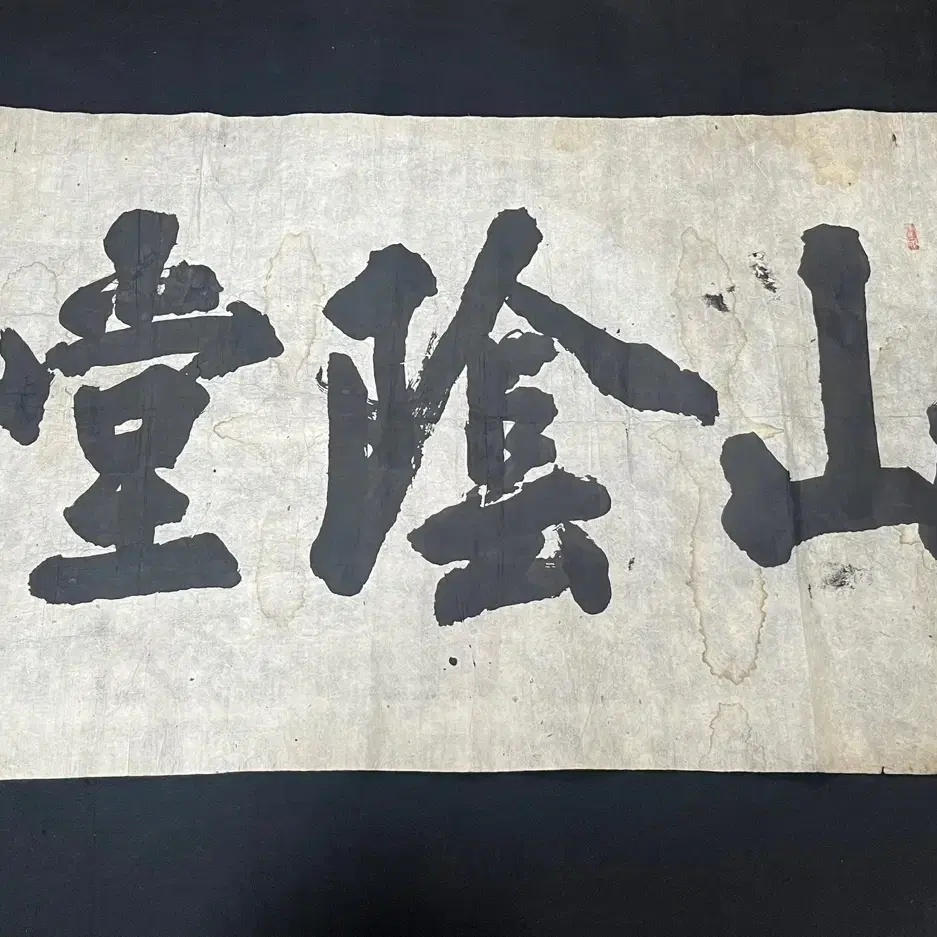 山陰堂